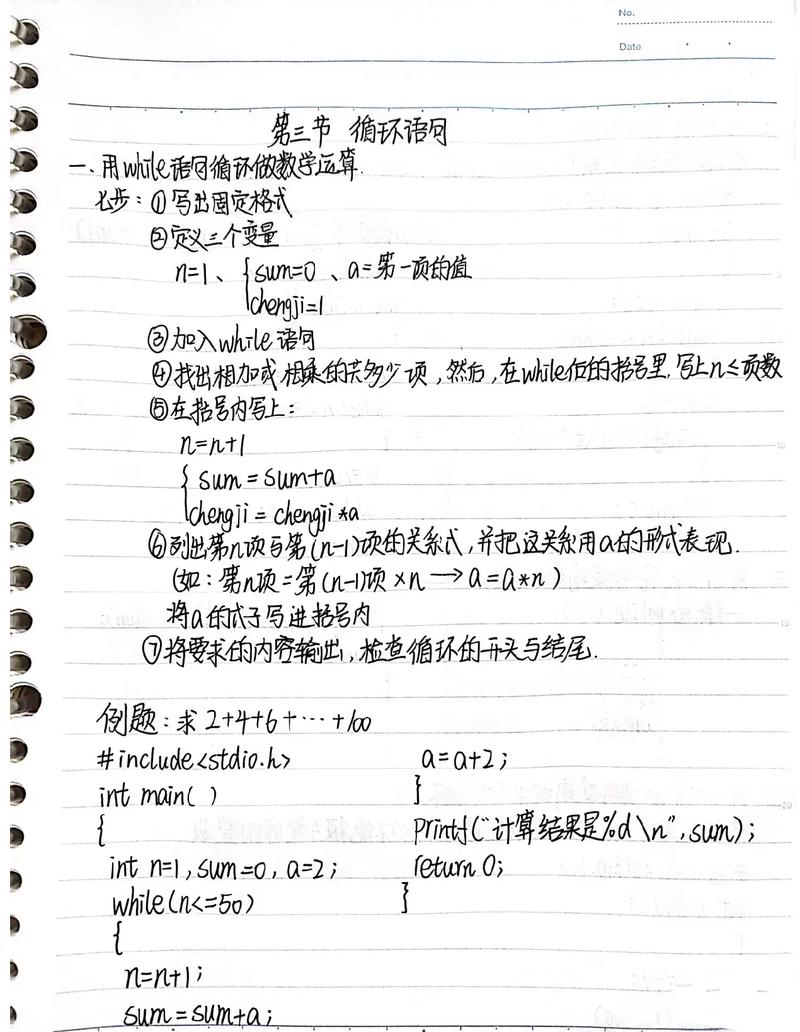 No.
Date
第三节 循环语句
一、用while语句循环做数学运算.
七步：①写出固定格式
②定义三个变量
n=1、{sum=0、a=第一项的值
chengji=1
③加入while语句
④找出相加或相乘的共多少项，然后，在while后的括号里.写上n≤项数
⑤在括号内写上：
n=n+1
{ sum = sum+a
chengji = chengji*a
⑥列出第n项与第(n-1)项的关系式，并把这关系用a的形式表现.
(如：第n项=第(n-1)项×n→a=a*n)
将a的式子写进括号内
⑦将要求的内容输出，检查循环的开头与结尾.
例题：求2+4+6+…+100
#include<stdio.h>
int main( )
{
int n=1,sum=0,a=2;
while(n<=50)
{
n=n+1;
sum=sum+a;
a=a+2;
}
printf("计算结果是%d\n",sum);
return 0;
}